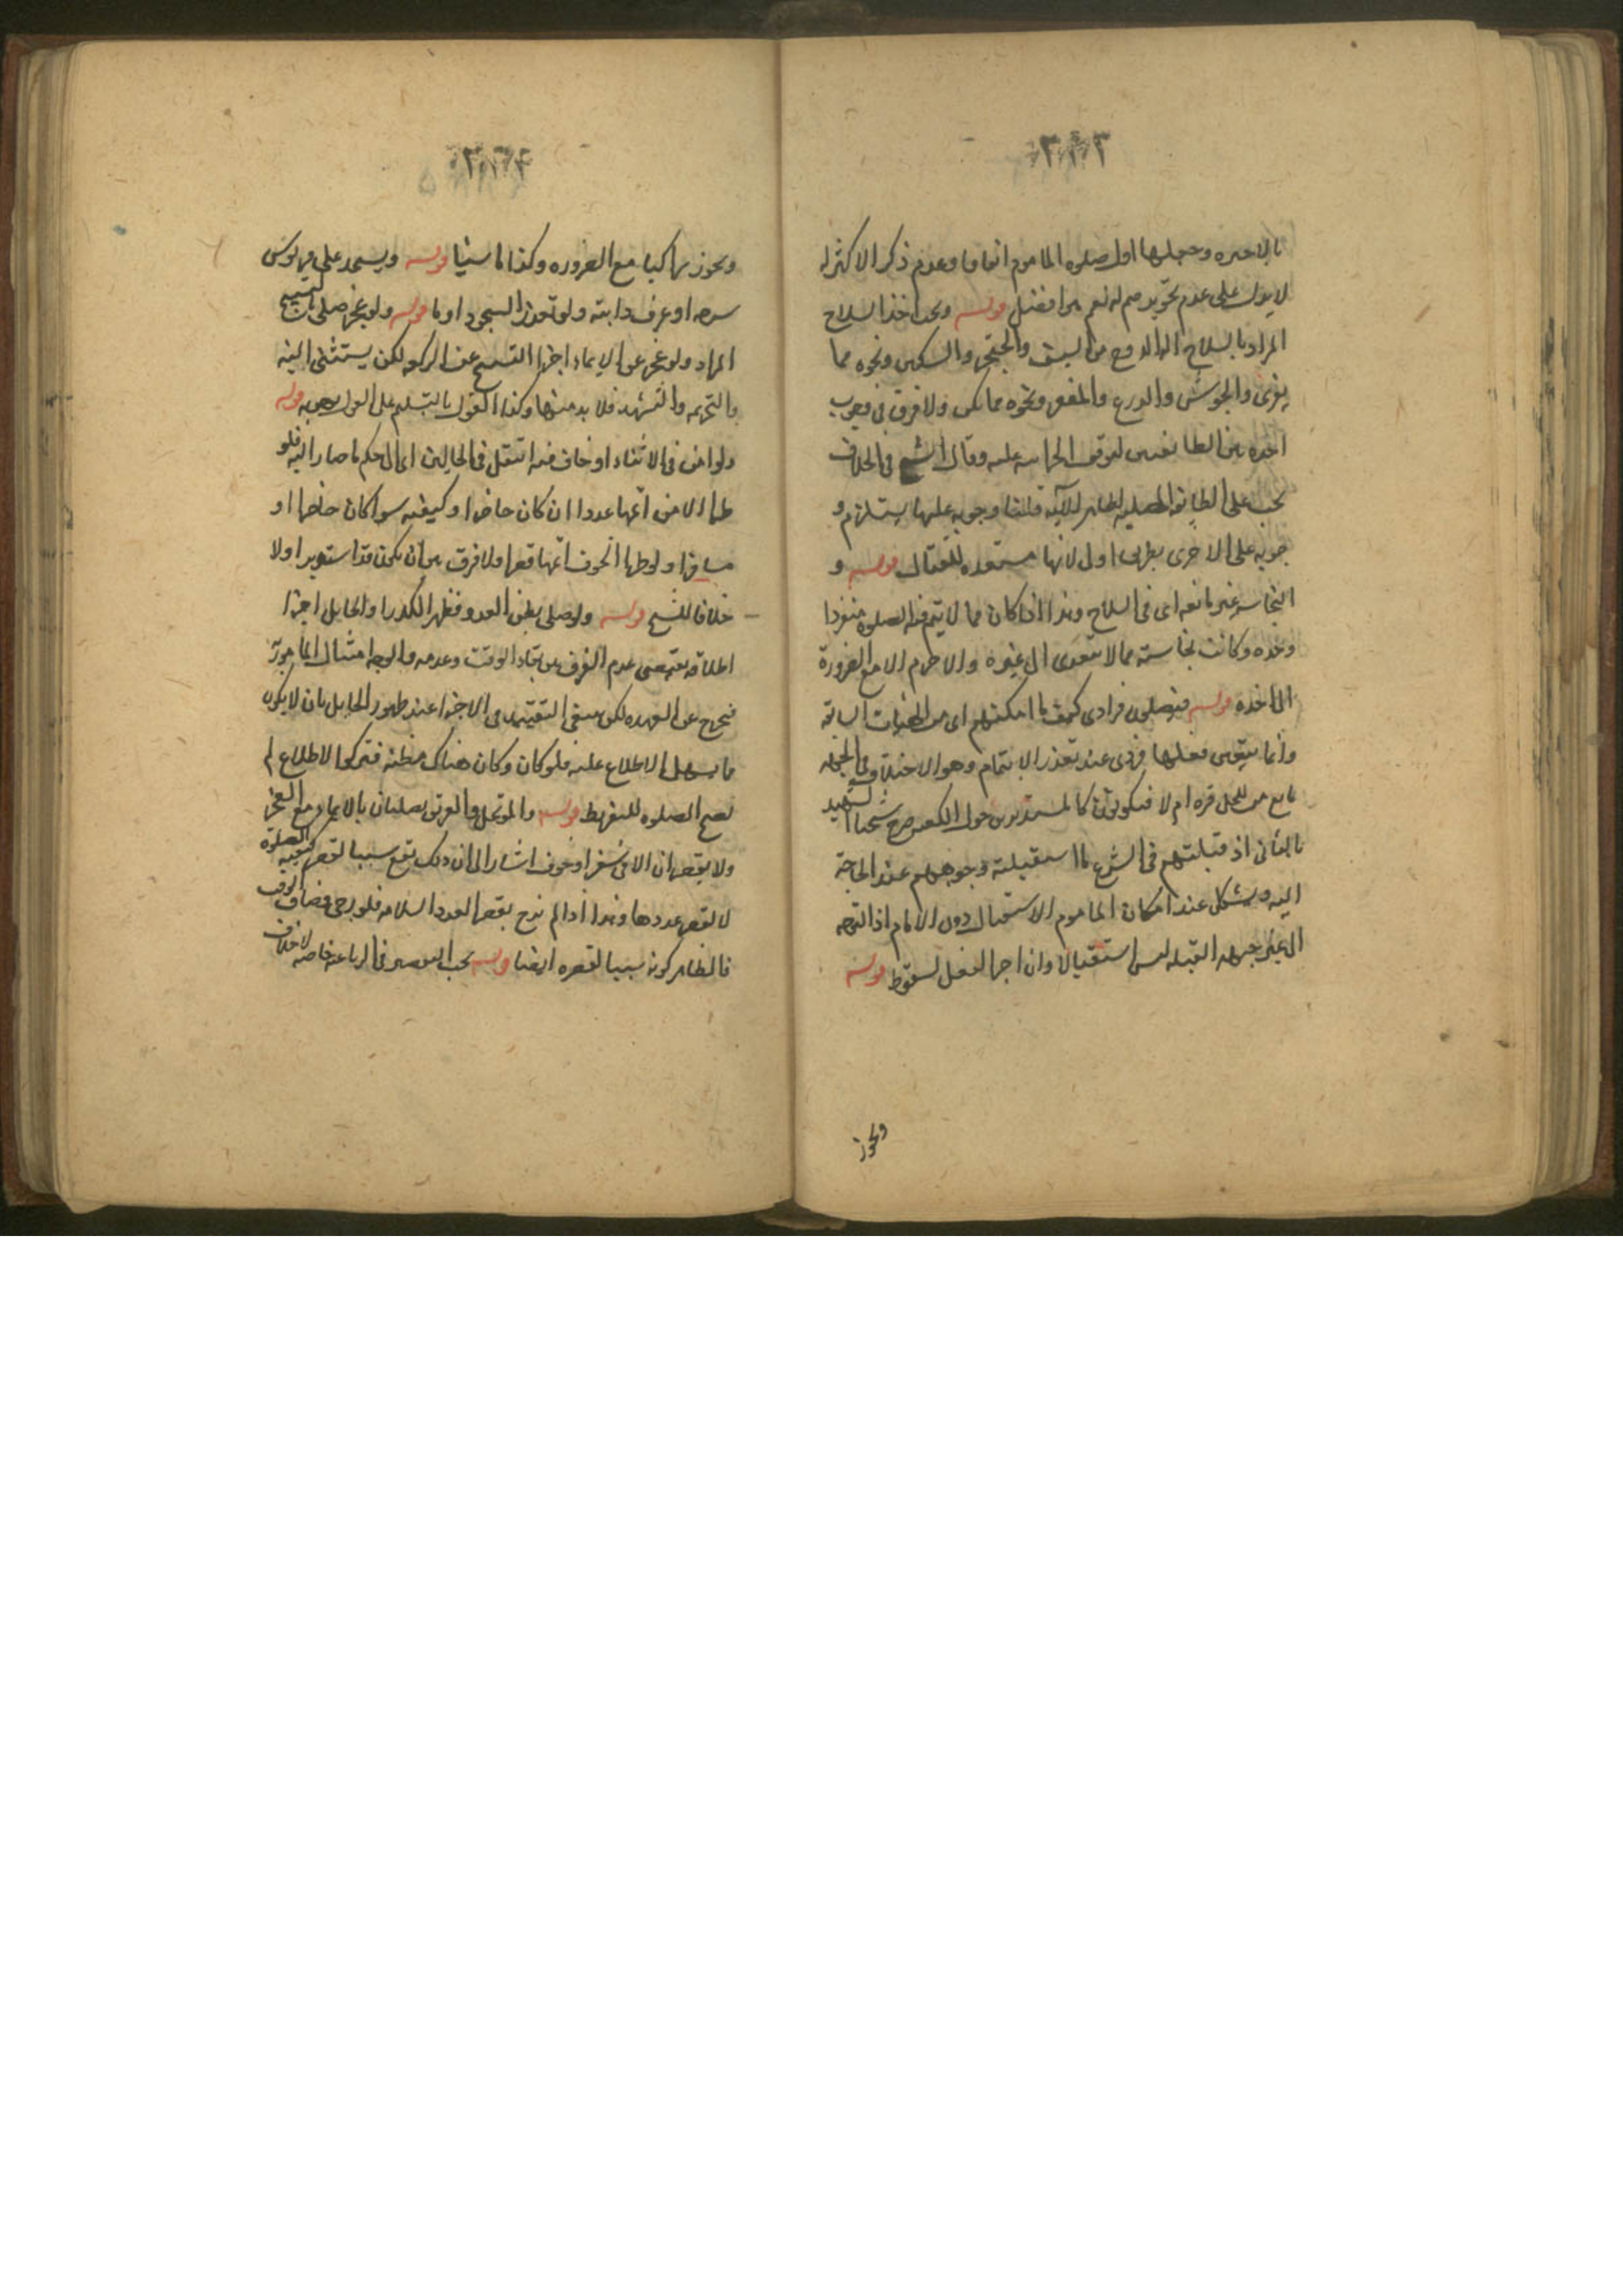 بالاخيره وجعلها اول صلوه الماموم اتفاقا وعدم ذكر الاكثر له
لا يدل على عدم تجويزهم له نعم هو افضل قوله ويجب اخذ السلاح
المراد بالسلاح اله الدفع من السيف والخنجر والسكين ونحوه مما
يفرى والجوشن والدرع والمغفر ونحوه مما يكن ولا فرق فى وجوب
اخذه بين الطائفتين لتوقف الحراسه عليه وقال الشيخ فى الخلاف
يجب على الطايفه المصليه لظاهر الآيه قلنا وجوبه عليها يستلزم و
جوبه على الاخرى بطريق اولى لانها مستعده للقتال قوله و
النجاسه غير مانعه اى فى السلاح وهذا اذا كان مما لا يتم فيه الصلوه منفردا
وحده وكانت نجاسته مما لا تتعدى الى غيره والا حرم الا مع الضرورة
الى اخذه قوله فيصلون فرادى كيف ما امكنهم اى من الهيئات السابقه
وانما يتعين فعلها فرادى عند تعذر الايتمام وهو الاختلاف فى الجهه
مانع من للجل قره ام لا فيكونون كالمستديرين حول الكعبه صرح شيخنا الشهيد
بالثانى اذ قبلتهم فى الشرع ما استقبلته وجوههم عند الحاجة
اليه ويشكل عند امكان الماموم الاستقبال دون الامام اذ التوجه
الى غير جهه القبله ليس استقبالا وان اجزا الفعل لسقوط قوله
ويجوز
ويجوز راكبا مع الضروره وكذا ماشيا قوله ويسجد على قربوس
سرجه او عرف دابته ولو تعذر السجود اوما قوله ولو عجز صلى بالتسبيح
المراد ولو عجز عن الايماء اجزا التسبيح عن الركعه لكن يستثنى النيه
والتحريمه والتشهد فلا بد منها وكذا القول بالتسليم على القول بوجوبه قوله
ولو امن فى الاثناء او خاف فيه انتقل فى الحالين اى الى حكم ما صار اليه فلو
طرا الامن اتمها عددا ان كان حاضرا وكيفيه سوا كان حاضرا او
مسافرا ولو طرا الخوف اتمها قصرا ولا فرق بين ان يكون قد استدبر اولا
خلافا للشيخ قوله ولو صلى بظن العدو فظهر الكذب او الحايل اجزا
اطلاقه يقتضى عدم الفرق بين بقاء الوقت وعدمه والوجه امتثال المامور به
فيخرج عن العهده لكن ينبغى التقييد فى الاجزا عند ظهور الحايل بان لا يكون
مما يسهل الاطلاع عليه فلو كان وكان هناك مظنه فتركوا الاطلاع لم
تصح الصلوه للتفريط قوله والموتحل والغريق يصليان بالايماء مع العجز
ولا يقصران الا فى سفر او خوف اشار الى ان ذلك يقع سببا لقصر كيفيه الصلوه
لا لقصر عددها وهذا اذا لم نرج بقصر العدد السلامه فلو رجى وضاق الوقت
فالظاهر كونه سببا لقصره ايضا قوله يجب التقصير فى الرباعيه خاصه لا خلاف